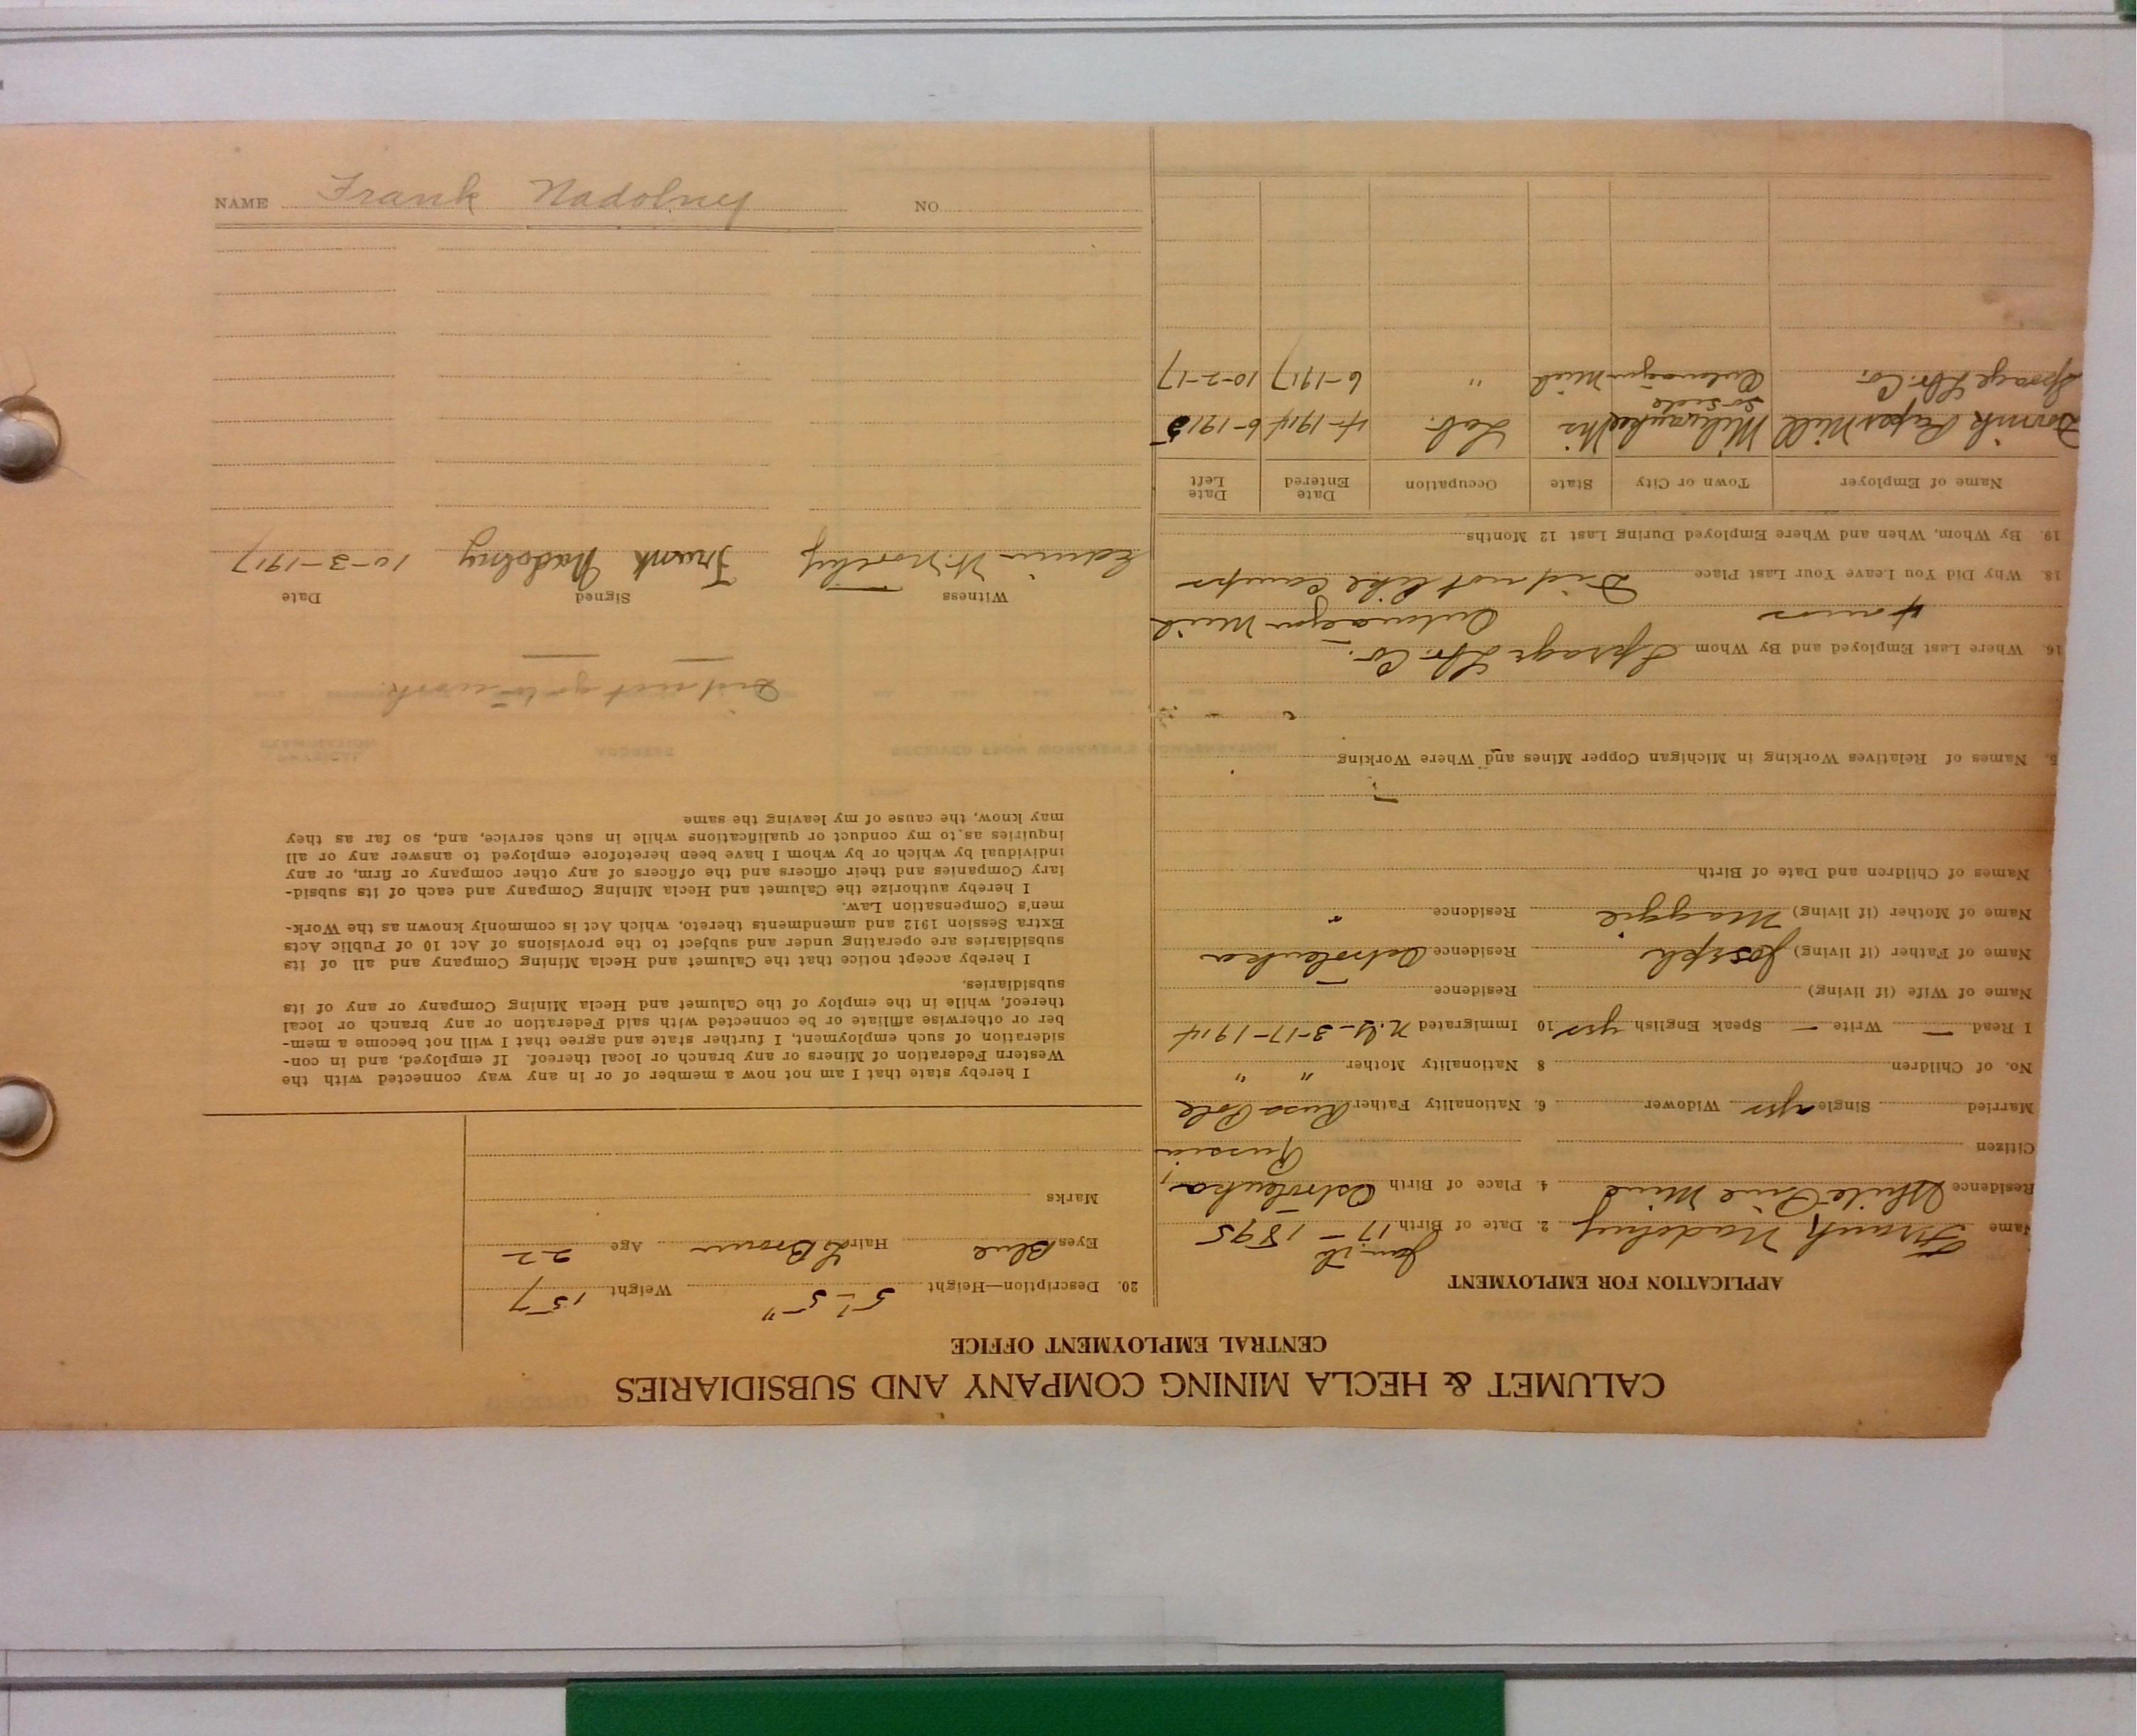 CALUMET & HECLA MINING COMPANY AND SUBSIDIARIES
CENTRAL EMPLOYMENT OFFICE
APPLICATION FOR EMPLOYMENT
Name Frank Nadolny 2. Date of Birth Jan. 17 - 1895
Residence White Pine Mine 4. Place of Birth Ostrolenka,
Citizen Russia
Married Single yes Widower 6. Nationality Father Russ Pole
No. of Children 8 Nationality Mother " "
I Read — Write — Speak English yes 10 Immigrated N.Y. 3-17-1914
Name of Wife (if living) Residence
Name of Father (if living) Joseph Residence Ostrolenka
Name of Mother (if living) Maggie Residence "
Names of Children and Date of Birth
5. Names of Relatives Working in Michigan Copper Mines and Where Working
16. Where Last Employed and By Whom Sprage Lbr. Co.
4 mos Mich
18. Why Did You Leave Your Last Place Did not like camps
19. By Whom, When and Where Employed During Last 12 Months
Name of Employer Town or City State Occupation Date Entered Date Left
Paper Mill Milwaukee Wis Lab. 4-1914 6-1915
So side
Sprage Lbr. Co. Mich " 6-1917 10-2-17
20. Description—Height 5'-5" Weight 157
Eyes Blue Hair D Brown Age 22
Marks
I hereby state that I am not now a member of or in any way connected with the
Western Federation of Miners or any branch or local thereof. If employed, and in con-
sideration of such employment, I further state and agree that I will not become a mem-
ber or otherwise affiliate or be connected with said Federation or any branch or local
thereof, while in the employ of the Calumet and Hecla Mining Company or any of its
subsidiaries.
I hereby accept notice that the Calumet and Hecla Mining Company and all of its
subsidiaries are operating under and subject to the provisions of Act 10 of Public Acts
Extra Session 1912 and amendments thereto, which Act is commonly known as the Work-
men's Compensation Law.
I hereby authorize the Calumet and Hecla Mining Company and each of its subsid-
iary Companies and their officers and the officers of any other company or firm, or any
individual by which or by whom I have been heretofore employed to answer any or all
inquiries as to my conduct or qualifications while in such service, and, so far as they
may know, the cause of my leaving the same
Did not go to work.
Witness Signed Date
Edwin W. Frank Nadolny 10-3-1917
NAME Frank Nadolney NO.